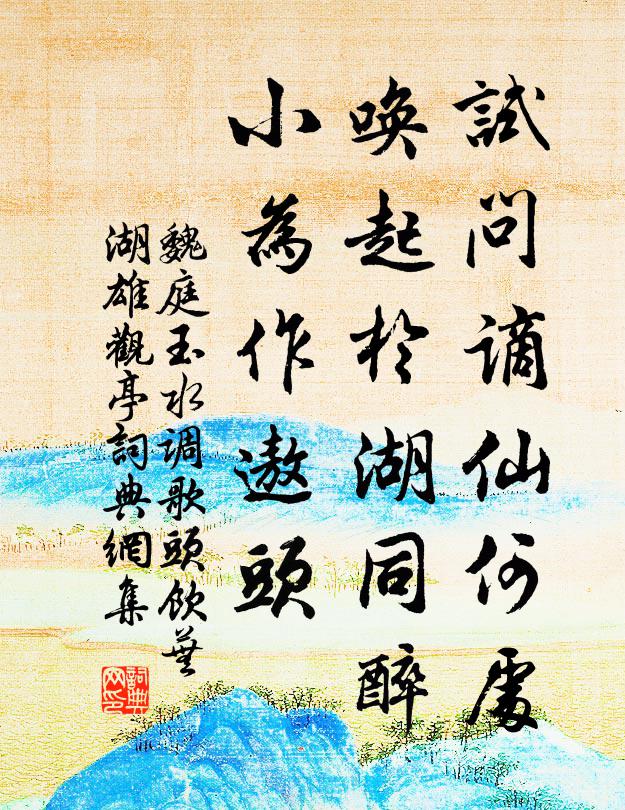 試問謫仙何處
喚起於湖同醉
小為作遨頭
魏庭玉水调歌頭飲蕪
湖雄觀亭詞典網集
詞典
网印